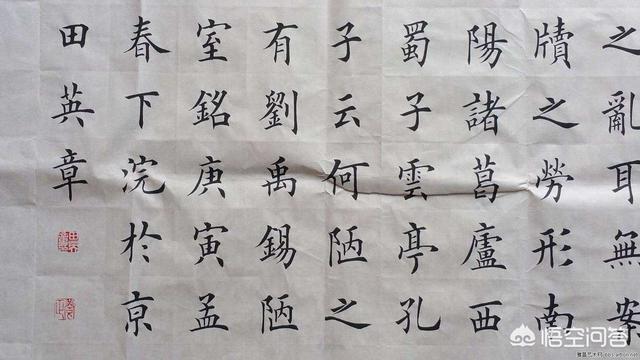 之亂耳無案
牘之勞形南
陽諸葛廬西
蜀子雲亭孔
子云何陋之
有劉禹錫陋
室銘庚寅孟
春下浣於京
田英章
悟空问答
雅昌艺术网 bbs.artron.net